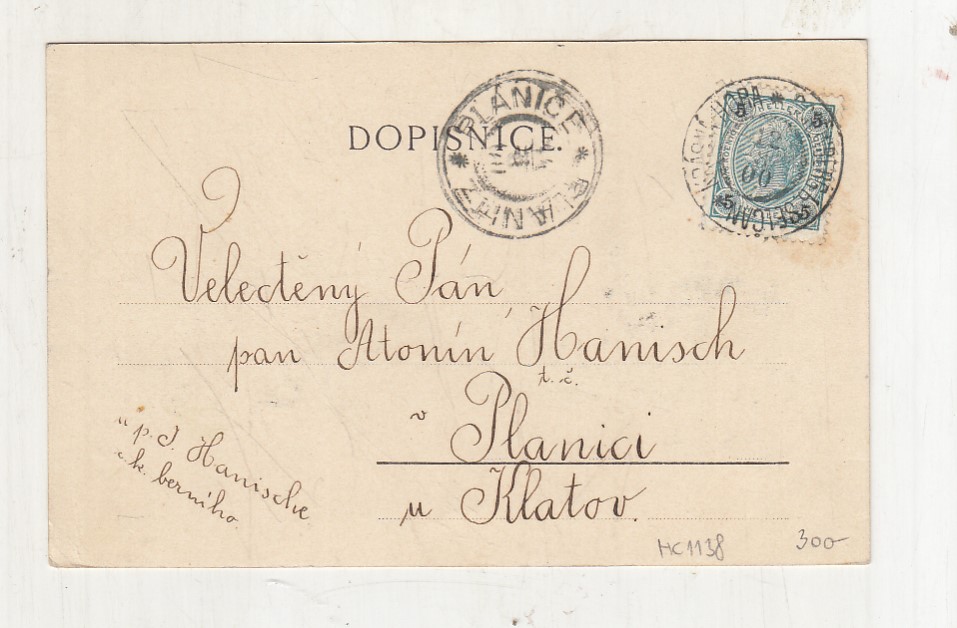 DOPISNICE.
PLÁNICE * PLANITZ *
5 5
HELLER
5 5
00
Velectěný Pán
pan Atonín Hanisch
t. č.
v Planici
u Klatov.
u p. J. Hanische
c.k. berního.
HC1138
300-